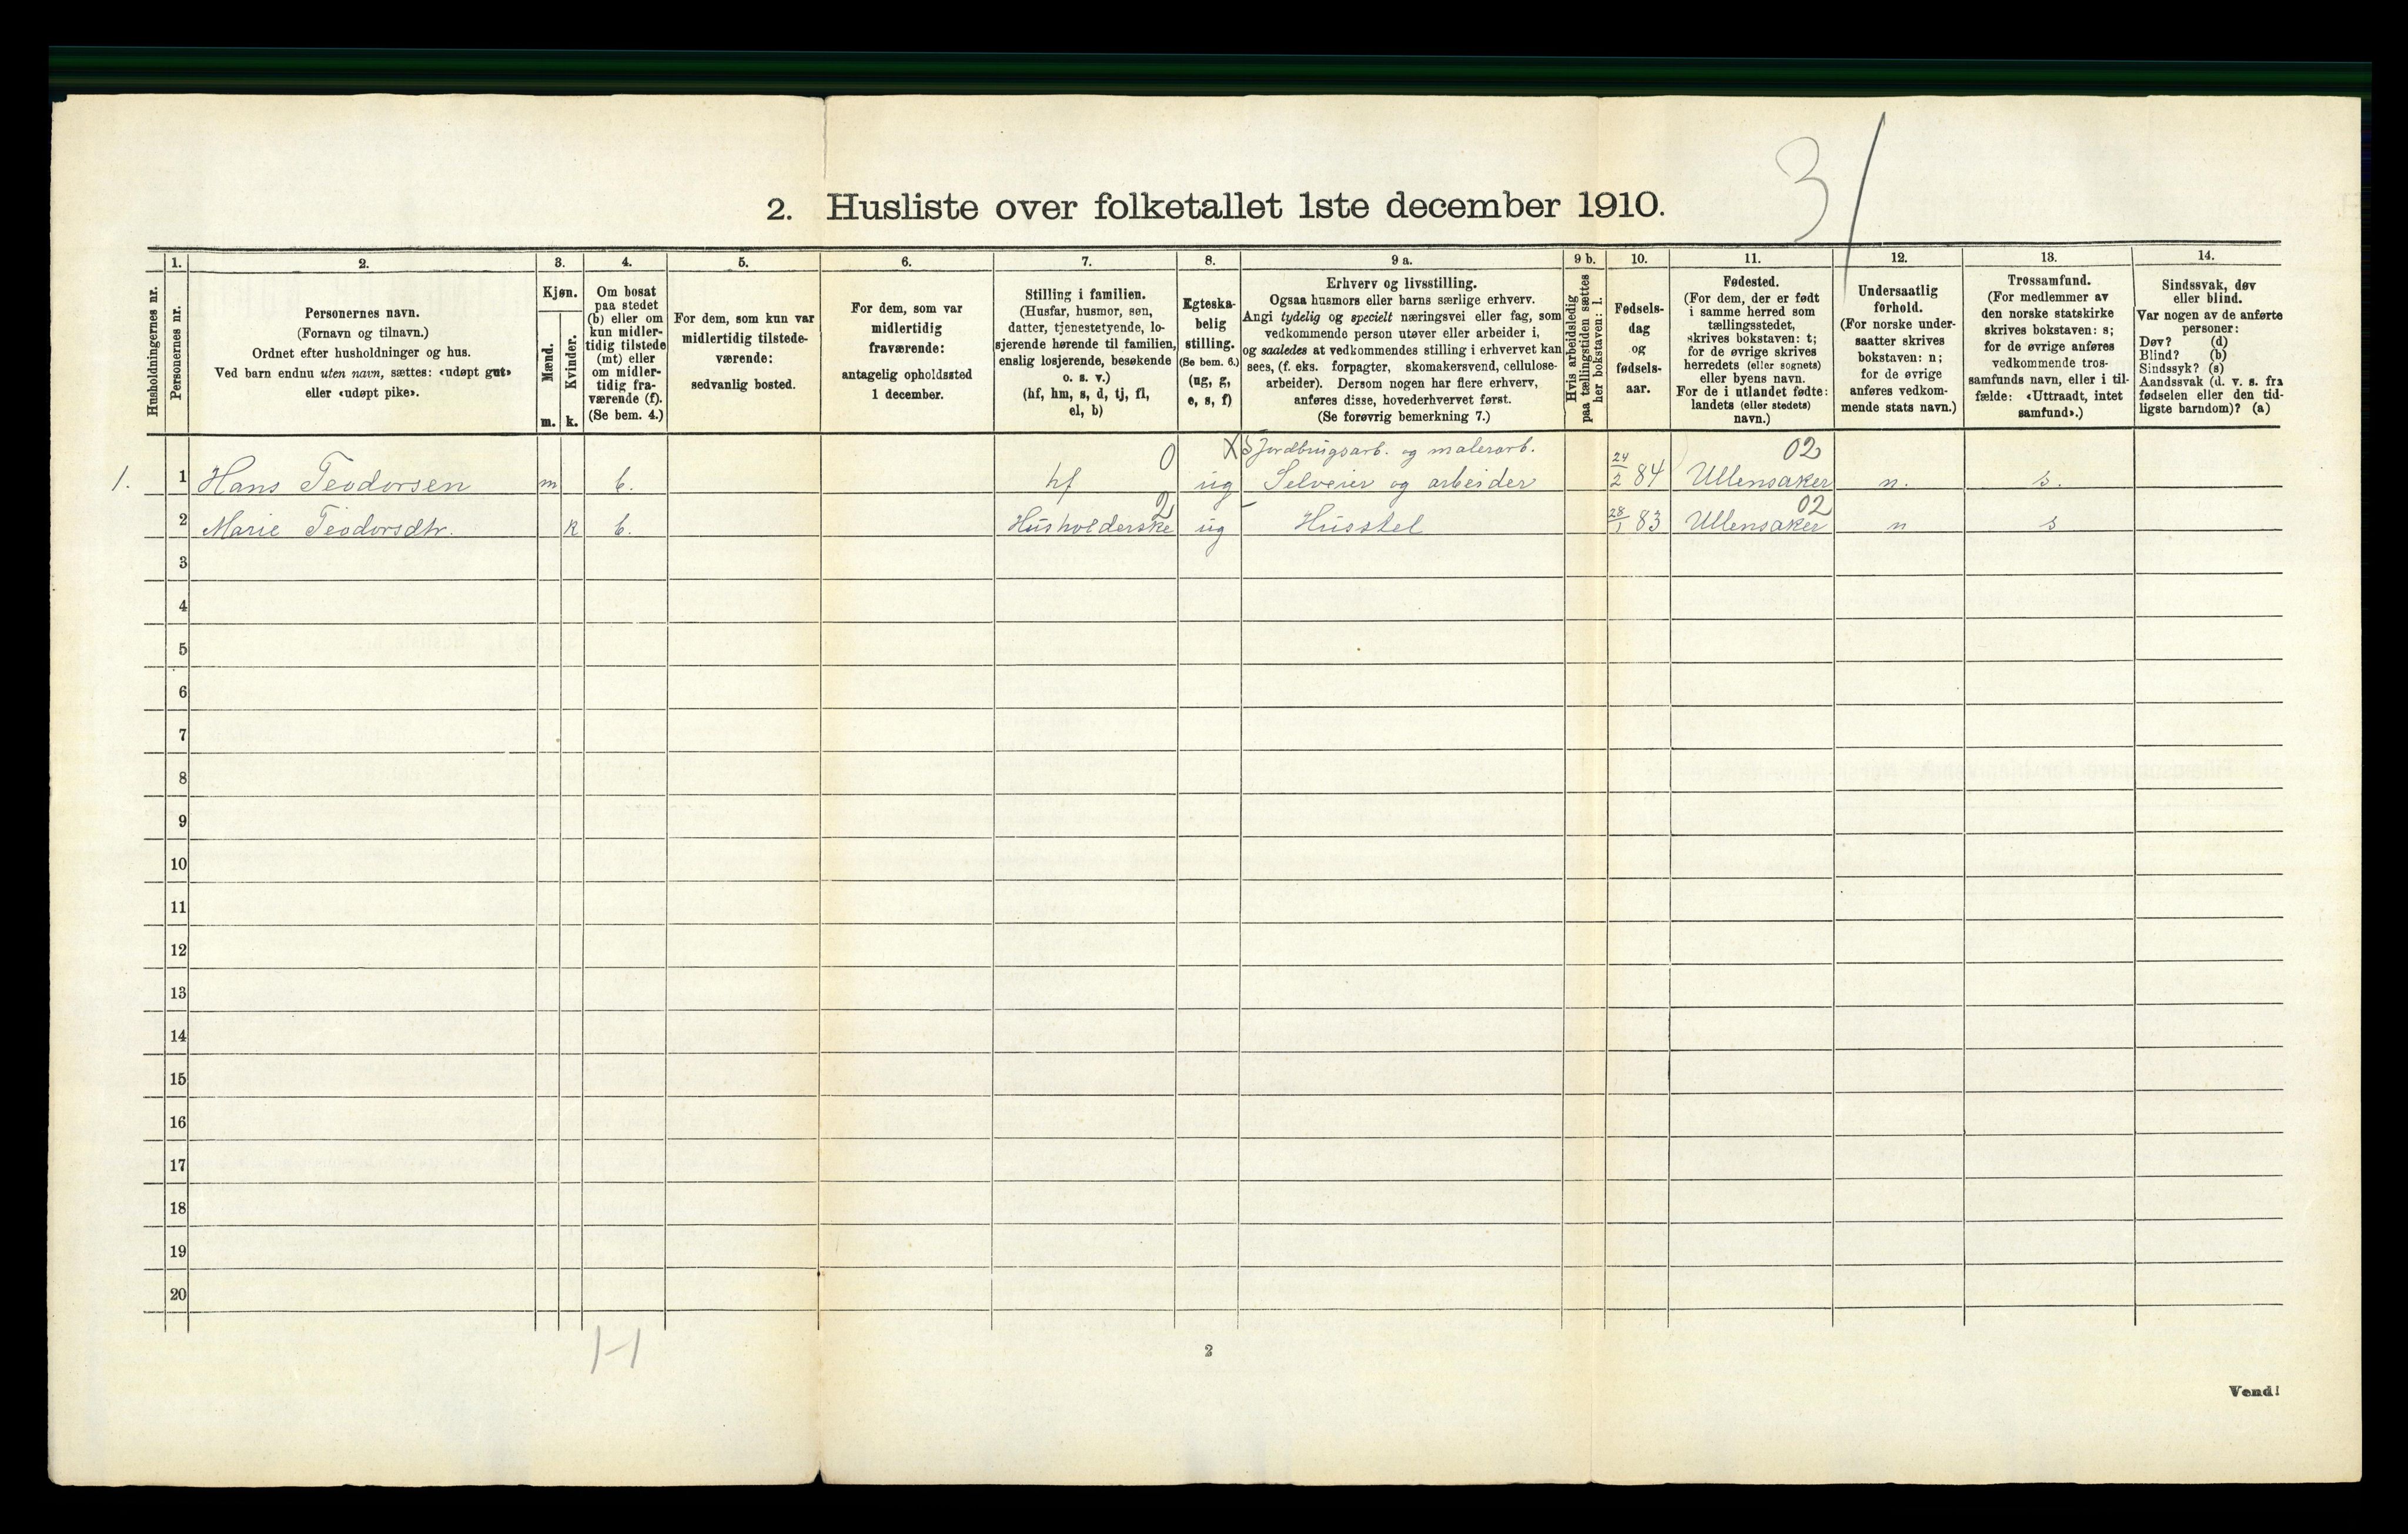 31
2. Husliste over folketallet 1ste december 1910.
Husholdningernes nr.
1.
Personernes nr.
2.
Personernes navn.
(Fornavn og tilnavn.)
Ordnet efter husholdninger og hus.
Ved barn endnu uten navn, sættes: «udøpt gut»
eller «udøpt pike».
3.
Kjøn.
Mænd.
Kvinder.
m. k.
4.
Om bosat
paa stedet
(b) eller om
kun midler-
tidig tilstede
(mt) eller
om midler-
tidig fra-
værende (f).
(Se bem. 4.)
5.
For dem, som kun var
midlertidig tilstede-
værende:
sedvanlig bosted.
6.
For dem, som var
midlertidig
fraværende:
antagelig opholdssted
1 december.
7.
Stilling i familien.
(Husfar, husmor, søn,
datter, tjenestetyende, lo-
sjerende hørende til familien,
enslig losjerende, besøkende
o. s. v.)
(hf, hm, s, d, tj, fl,
el, b)
8.
Egteska-
belig
stilling.
(Se bem. 6.)
(ug, g,
e, s, f)
9 a.
Erhverv og livsstilling.
Ogsaa husmors eller barns særlige erhverv.
Angi tydelig og specielt næringsvei eller fag, som
vedkommende person utøver eller arbeider i,
og saaledes at vedkommendes stilling i erhvervet kan
sees, (f. eks. forpagter, skomakersvend, cellulose-
arbeider). Dersom nogen har flere erhverv,
anføres disse, hovederhvervet først.
(Se forøvrig bemerkning 7.)
9 b.
Hvis arbeidsledig
paa tællingstiden sættes
her bokstaven: l.
10.
Fødsels-
dag
og
fødsels-
aar.
11.
Fødested.
(For dem, der er født
i samme herred som
tællingsstedet,
skrives bokstaven: t;
for de øvrige skrives
herredets (eller sognets)
eller byens navn.
For de i utlandet fødte:
landets (eller stedets)
navn.)
12.
Undersaatlig
forhold.
(For norske under-
saatter skrives
bokstaven: n;
for de øvrige
anføres vedkom-
mende stats navn.)
13.
Trossamfund.
(For medlemmer av
den norske statskirke
skrives bokstaven: s;
for de øvrige anføres
vedkommende tros-
samfunds navn, eller i til-
fælde: «Uttraadt, intet
samfund».)
14.
Sindssvak, døv
eller blind.
Var nogen av de anførte
personer:
Døv? (d)
Blind? (b)
Sindssyk? (s)
Aandssvak (d. v. s. fra
fødselen eller den tid-
ligste barndom)? (a)
0 X Jordbrugsarb. og malerarb. 02
1. 1 Hans Teodorsen m b. hf ug Selveier og arbeider 24/2 84 Ullensaker n. s.
2 02
2 Marie Teodorsdtr. k b. Husholderske ug Husstel 28/1 83 Ullensaker n s
3
4
5
6
7
8
9
10
11
12
13
14
15
16
17
18
19
20
1-1
2
Vend!